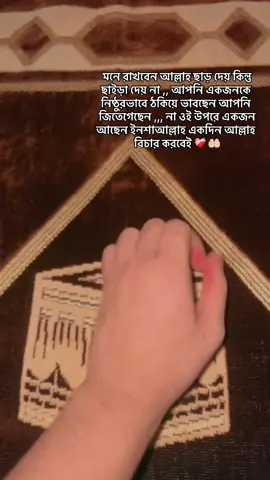 মনে রাখবেন আল্লাহ ছাড় দেয় কিন্তু
ছাইড়া দেয় না ,, আপনি একজনকে
নিষ্ঠুরভাবে ঠকিয়ে ভাবছেন আপনি
জিতেগেছেন ,,, না ওই উপরে একজন
আছেন ইনশাআল্লাহ একদিন আল্লাহ
বিচার করবেই ❤️‍🩹🤲🏻